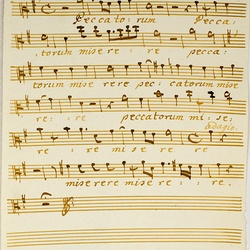 Peccato: rum Pecca:
torum mise re : re pecca:
torum mise rere pec: catorum mise
re: re peccatorum mi: se:
adagio.
re : re mise re : re
miserere mise re : : re.